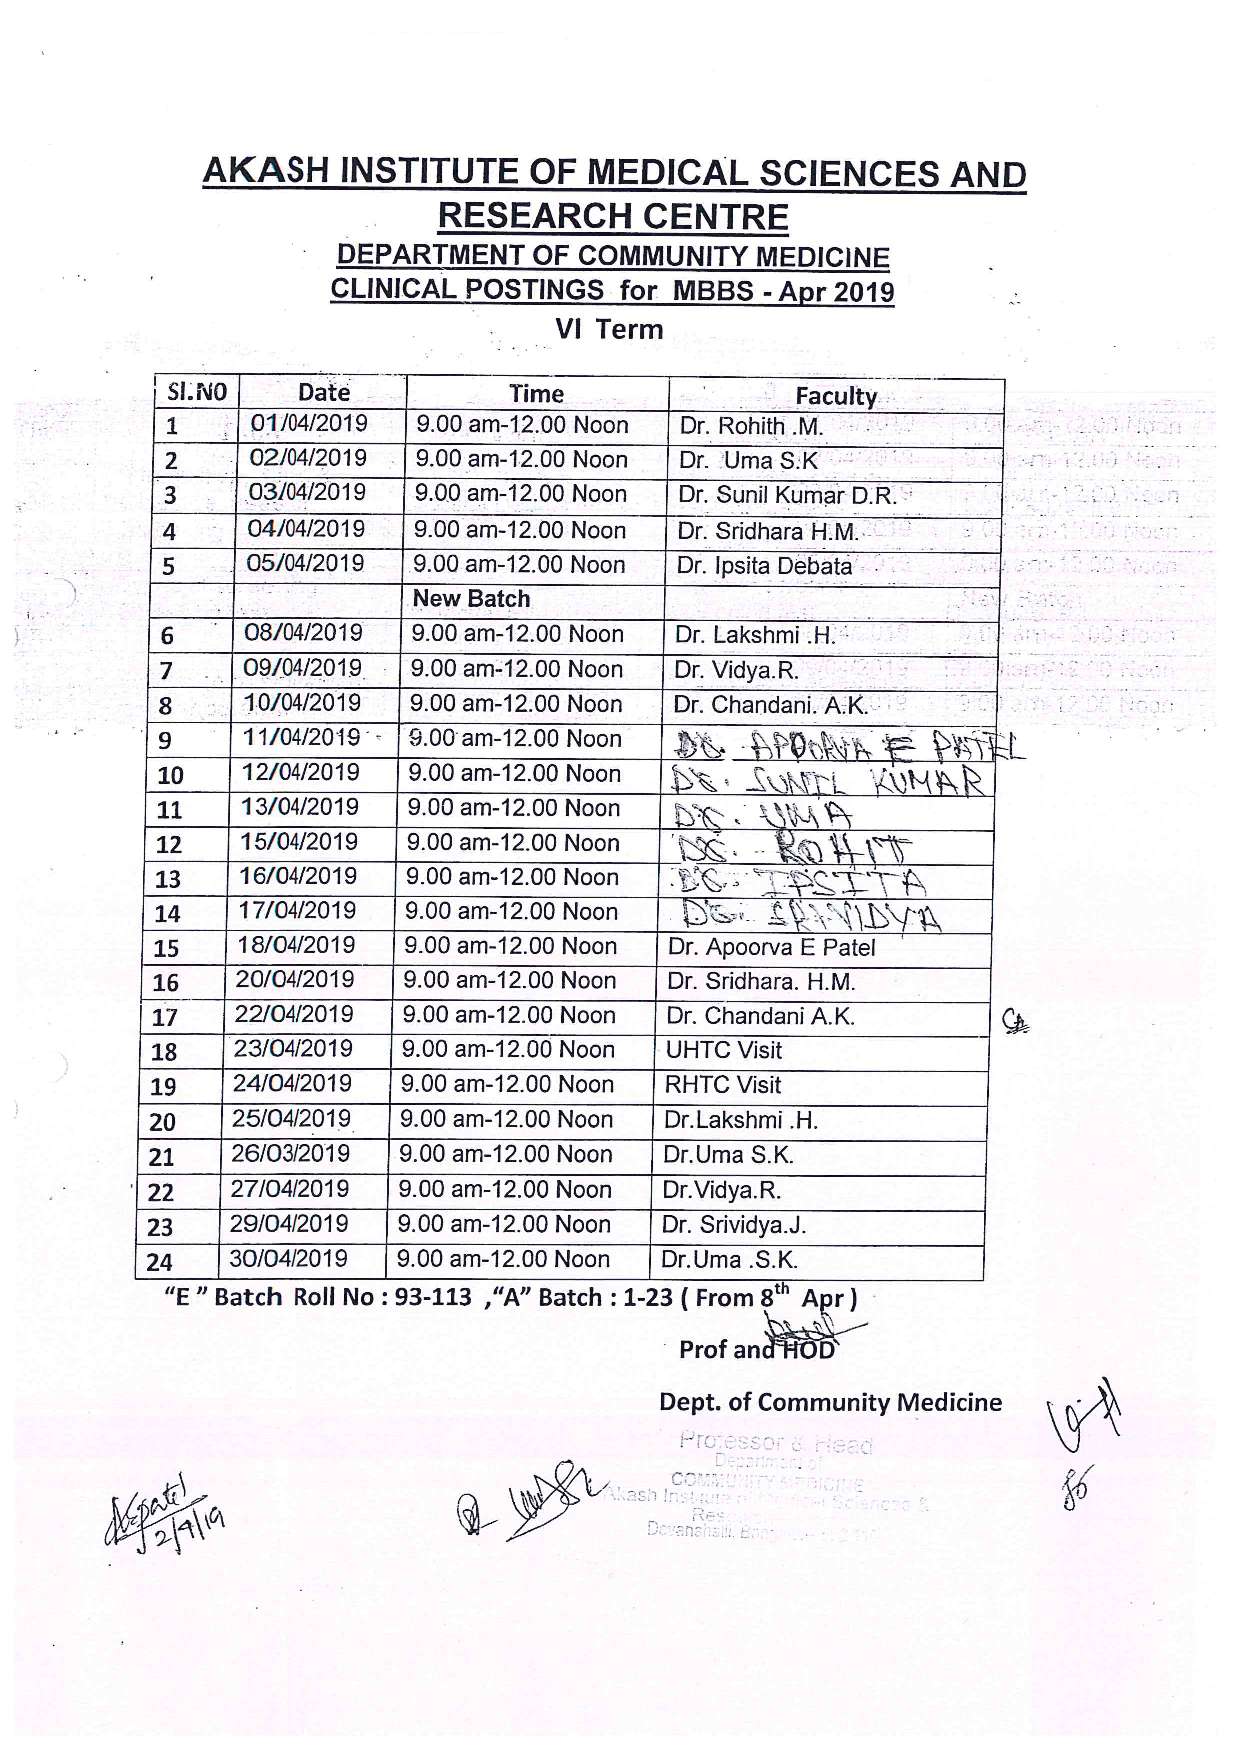 AKASH INSTITUTE OF MEDICAL SCIENCES AND
RESEARCH CENTRE
DEPARTMENT OF COMMUNITY MEDICINE
CLINICAL POSTINGS for MBBS - Apr 2019
VI Term
Sl.NO Date Time Faculty
1 01/04/2019 9.00 am-12.00 Noon Dr. Rohith .M.
2 02/04/2019 9.00 am-12.00 Noon Dr. Uma S.K
3 03/04/2019 9.00 am-12.00 Noon Dr. Sunil Kumar D.R.
4 04/04/2019 9.00 am-12.00 Noon Dr. Sridhara H.M.
5 05/04/2019 9.00 am-12.00 Noon Dr. Ipsita Debata
New Batch
6 08/04/2019 9.00 am-12.00 Noon Dr. Lakshmi .H.
7 09/04/2019 9.00 am-12.00 Noon Dr. Vidya.R.
8 10/04/2019 9.00 am-12.00 Noon Dr. Chandani. A.K.
9 11/04/2019 9.00 am-12.00 Noon Dr. APOORVA E PATEL
10 12/04/2019 9.00 am-12.00 Noon Dr. SUNIL KUMAR
11 13/04/2019 9.00 am-12.00 Noon Dr. UMA
12 15/04/2019 9.00 am-12.00 Noon Dr. ROHIT
13 16/04/2019 9.00 am-12.00 Noon Dr. IPSITA
14 17/04/2019 9.00 am-12.00 Noon Dr. SRIVIDYA
15 18/04/2019 9.00 am-12.00 Noon Dr. Apoorva E Patel
16 20/04/2019 9.00 am-12.00 Noon Dr. Sridhara. H.M.
17 22/04/2019 9.00 am-12.00 Noon Dr. Chandani A.K.
18 23/04/2019 9.00 am-12.00 Noon UHTC Visit
19 24/04/2019 9.00 am-12.00 Noon RHTC Visit
20 25/04/2019 9.00 am-12.00 Noon Dr.Lakshmi .H.
21 26/03/2019 9.00 am-12.00 Noon Dr.Uma S.K.
22 27/04/2019 9.00 am-12.00 Noon Dr.Vidya.R.
23 29/04/2019 9.00 am-12.00 Noon Dr. Srividya.J.
24 30/04/2019 9.00 am-12.00 Noon Dr.Uma .S.K.
“E ” Batch Roll No : 93-113 ,“A” Batch : 1-23 ( From 8th Apr )
Prof and HOD
Dept. of Community Medicine
Professor & Head
Department of
COMMUNITY MEDICINE
Akash Institute of Medical Sciences &
2/4/19